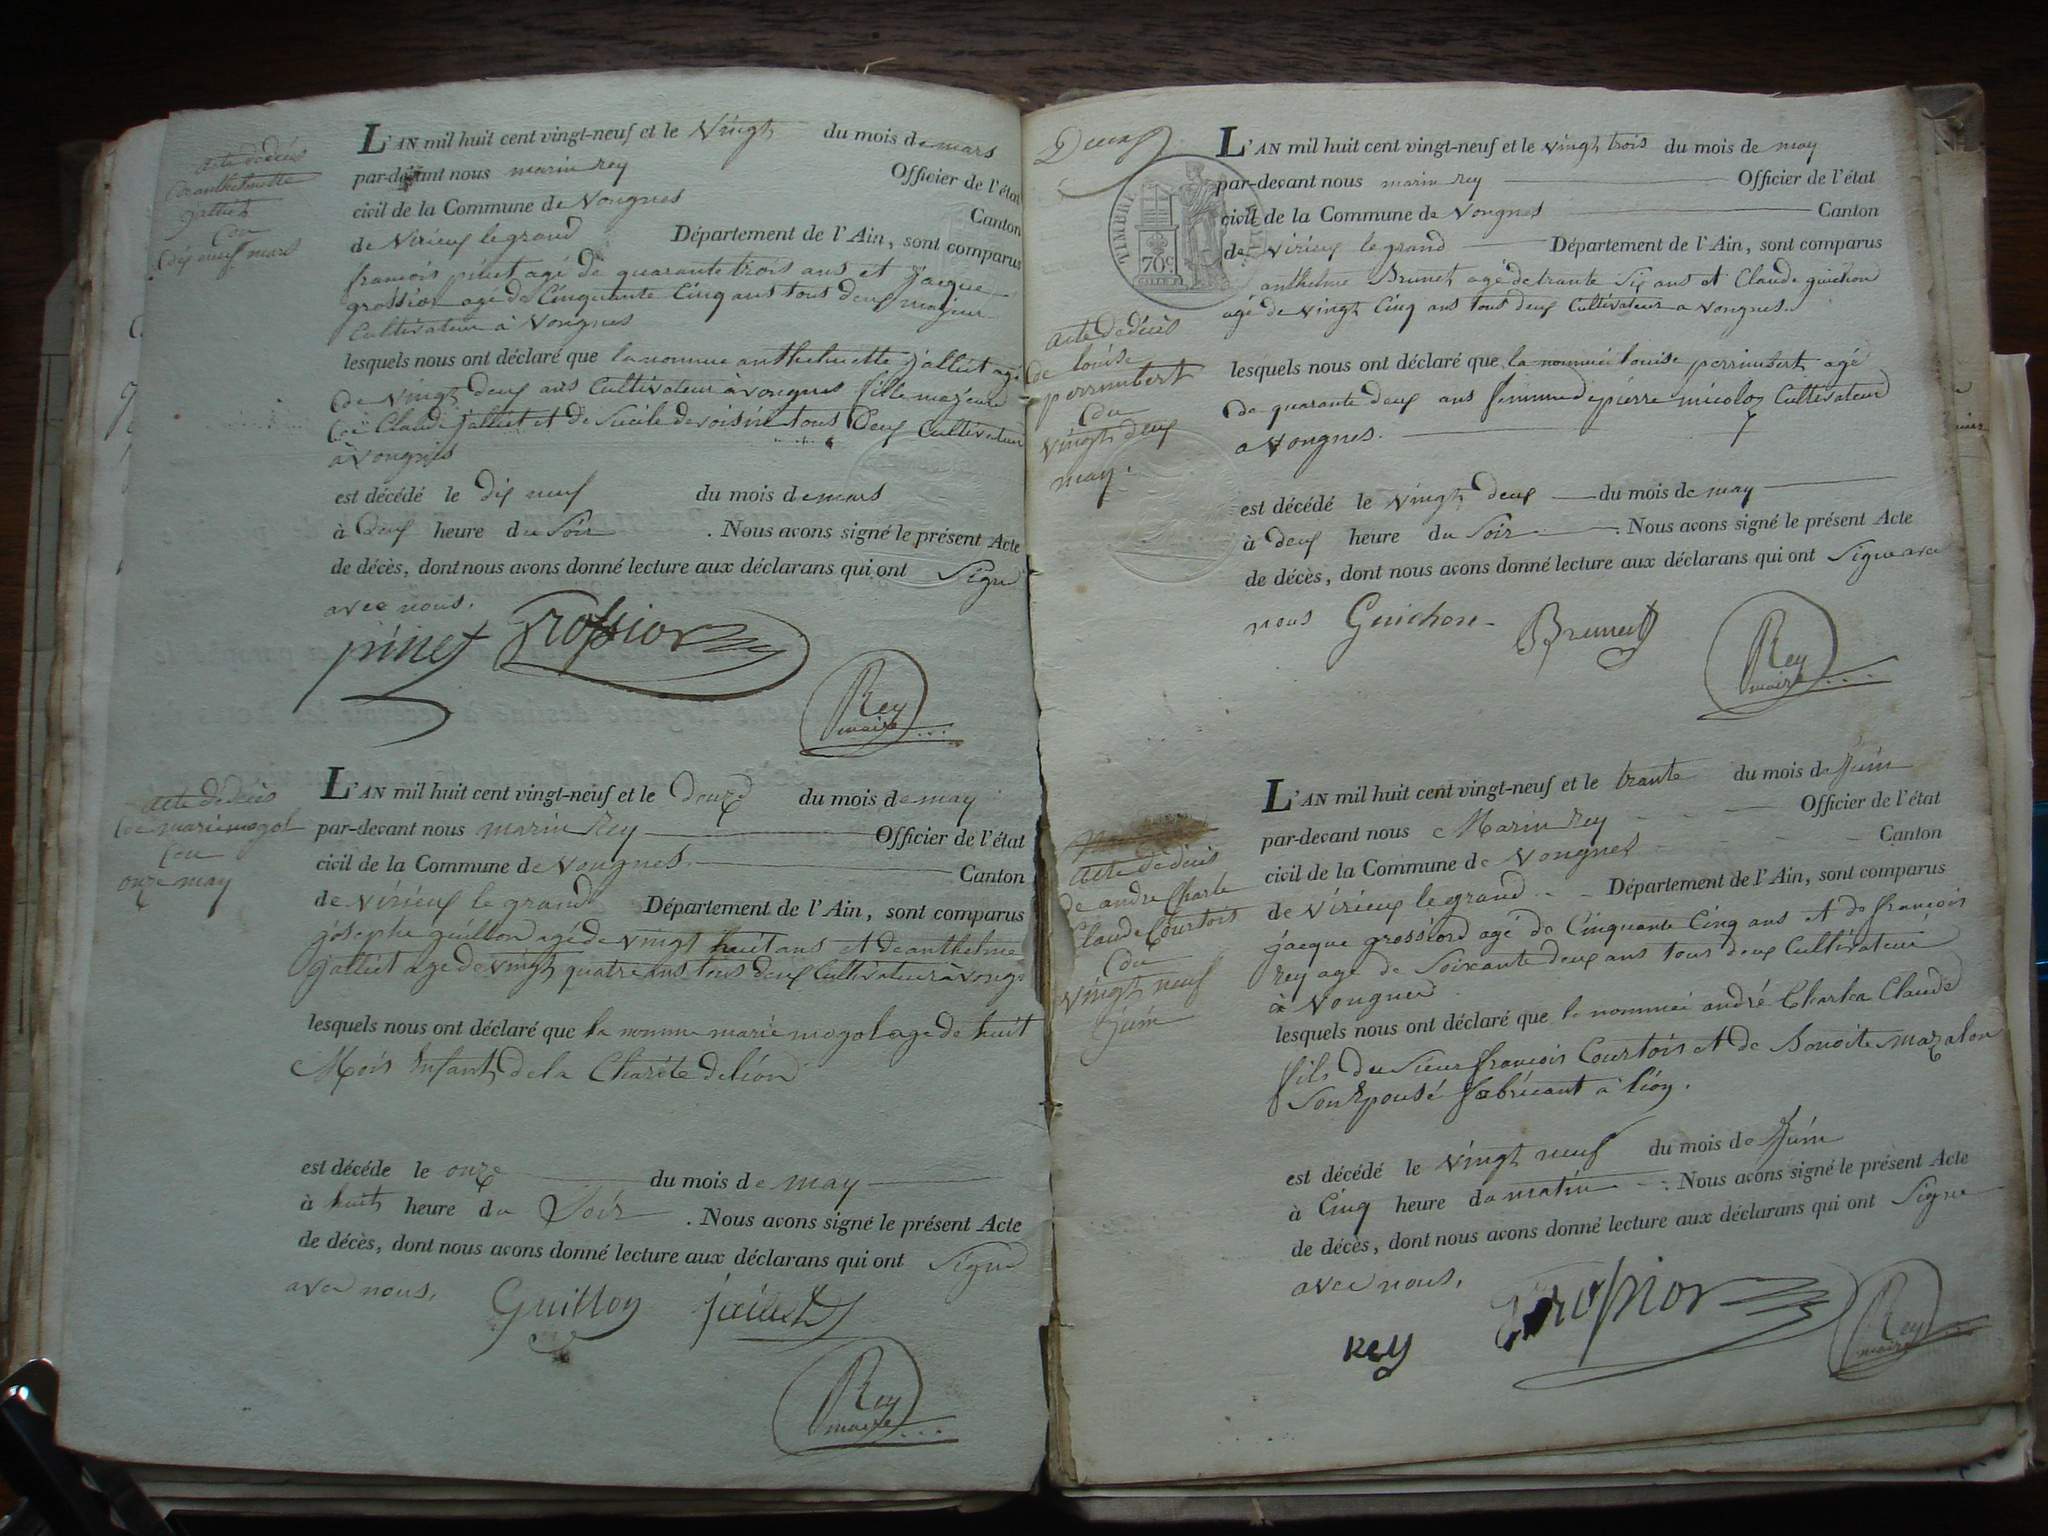 acte de décès
de anthelmette
jalliet
du
dix neuf mars
L'AN mil huit cent vingt-neuf et le vingt du mois de mars
par-devant nous marin rey Officier de l'état
civil de la Commune de Vongnes Canton
de Virieux le grand Département de l'Ain, sont comparus
françois pinet agé de quarante trois ans et jacque
grossior agé de Cinquante Cinq ans tous deux majeur
Cultivateur à Vongnes
lesquels nous ont déclaré que la nommee anthelmette jalliet agé
de vingt deux ans Cultivateur à vongnes fille majeure
de Claude jalliet et de de voisin tous Deux Cultivateur
à vongnes
est décédé le dix neuf du mois de mars
à Deux heure du Soir . Nous avons signé le présent Acte
de décès, dont nous avons donné lecture aux déclarans qui ont Signé
avec nous.
pinet Grossior
Rey
maire
acte de décès
de marie mogol
du
onze may
L'AN mil huit cent vingt-neuf et le Douze du mois de may
par-devant nous marin Rey Officier de l'état
civil de la Commune de Vongnes Canton
de virieux le grand Département de l'Ain, sont comparus
josephe guillon agé de vingt huit ans et de anthelme
jalliet agé de vingt quatre ans tous deux Cultivateur à vong
lesquels nous ont déclaré que la nommee marie mogol age de huit
Mois Enfant de la Charité de lion
est décéde le onze du mois de may
à huit heure du Soir . Nous avons signé le présent Acte
de décès, dont nous avons donné lecture aux déclarans qui ont Signé
avec nous,
Guillon jalliet
Rey
maire
TIMBRE
70c
L'AN mil huit cent vingt-neuf et le vingt trois du mois de may
par-devant nous marin rey Officier de l'état
civil de la Commune de Vongnes Canton
de virieux le grand Département de l'Ain, sont comparus
anthelme Brunet agé de trante Six ans et Claude guichon
agé de vingt Cinq ans tous deux Cultivateur a vongnes.
acte de décès
de louise
perrimbert
du
vingt deux
may.
lesquels nous ont déclaré que la nommée louise perrimbert agé
de quarante deux ans femme de pierre micoloz Cultivateur
a Vongnes.
est décédé le vingt deux du mois de may
à deux heure du Soir . Nous avons signé le présent Acte
de décès, dont nous avons donné lecture aux déclarans qui ont Signe avec
nous Guichon Brunet
Rey
maire
acte de décès
de andre Charle
Claude Courtois
du
vingt neuf
juin
L'AN mil huit cent vingt-neuf et le trante du mois de Juin
par-devant nous Marin rey Officier de l'état
civil de la Commune de Vongnes Canton
de Virieux le grand Département de l'Ain, sont comparus
jacque grossiord agé de Cinquante Cinq ans et de françois
rey agé de Soixante deux ans tous deux Cultivateur
à Vongnes
lesquels nous ont déclaré que le nommée andré Charles Claude
fils du Sieur françois Courtois et de Benoite mazalon
Son Epousé fabricant a lion.
est décédé le vingt neuf du mois de Juin
à Cinq heure du matin . Nous avons signé le présent Acte
de décès, dont nous avons donné lecture aux déclarans qui ont Signe
avec nous,
Rey Grossior
Rey
maire